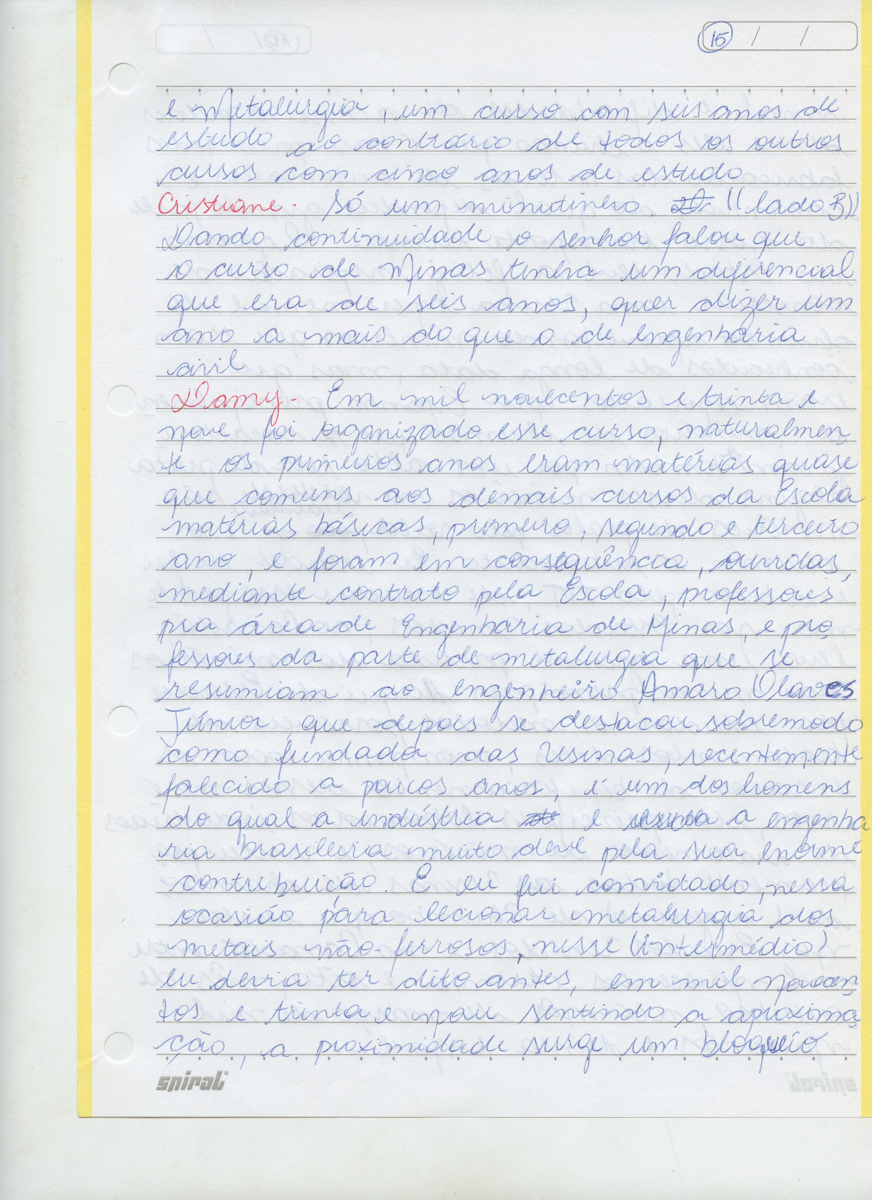 15 / /
e Metalurgia, um curso com seis anos de
estudo ao contrário de todos os outros
cursos com cinco anos de estudo
Cristiane - Só um minutinero ((lado B))
Dando continuidade o senhor falou que
o curso de Minas tinha um diferencial
que era de seis anos, quer dizer um
ano a mais do que o de engenharia
civil
Damy - Em mil novecentos e trinta e
nove foi organizado esse curso, naturalmen
te os primeiros anos eram matérias quase
que comuns aos demais cursos da Escola
matérias básicas, primeiro, segundo e terceiro
ano, e foram em conseqüência, ouvidas,
mediante contrato pela Escola, professores,
pra área de Engenharia de Minas, e pro
fessores da parte de metalurgia que se
resumiam ao engenheiro Amaro Olaves
Júnior que depois se destacou sobremodo
como fundador das Usinas, recentemente
falecido a poucos anos, é um dos homens
do qual a indústria e a engenha
ria brasileira muito deve pela sua enorme
contribuição. E eu fui convidado, nessa
ocasião para lecionar metalurgia dos
metais não-ferrosos, nesse (intermédio)
eu devia ter dito antes, em mil novecen
tos e trinta e nove sentindo a aproxima
ção, a proximidade surge um bloqueio
spiral